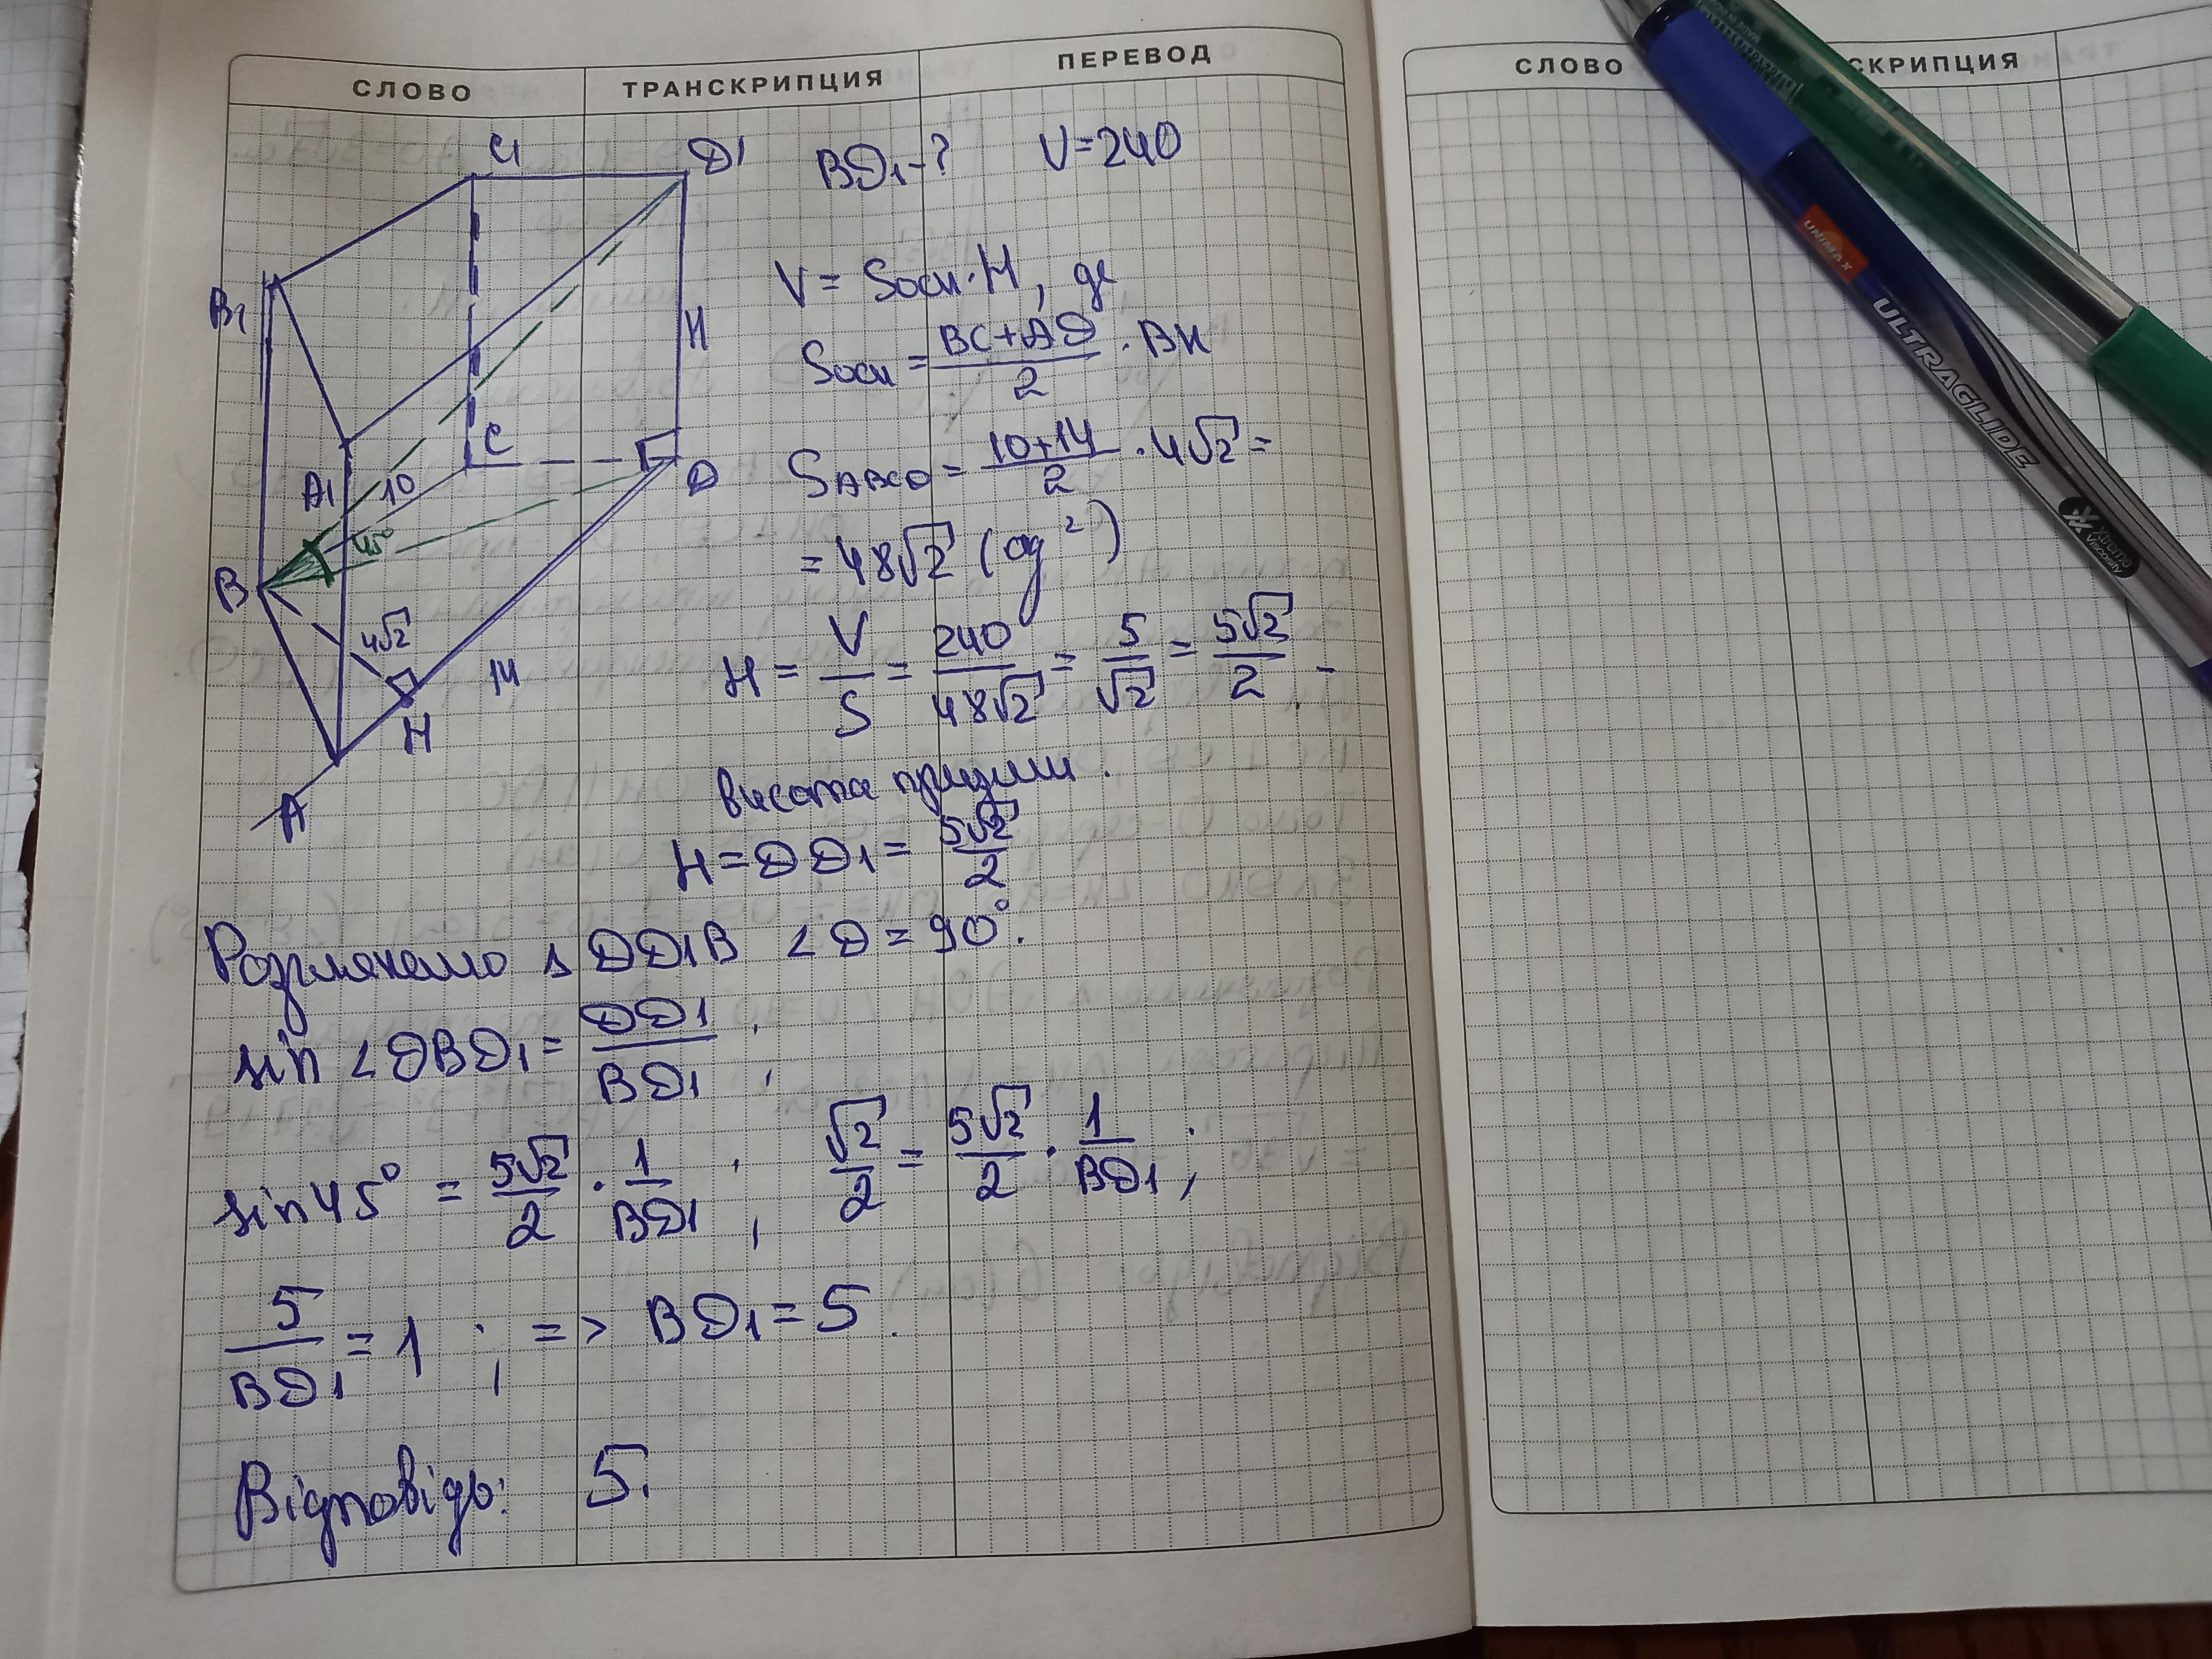 СЛОВО ТРАНСКРИПЦИЯ ПЕРЕВОД
C1
D1
BD1-? V=240
V = Sосн·H, де
B1
H
Sосн = (BC+AD)/2 · BH
C
A1
10
D
SABCD = (10+14)/2 · 4√2 =
45°
= 48√2 (од²)
B
4√2
14
H
A
H = V/S = 240/48√2 = 5/√2 = 5√2/2 -
висота призми.
H = DD1 = 5√2/2
Розглянемо Δ DD1B ∠D = 90°.
sin ∠DBD1 = DD1/BD1 ;
sin 45° = 5√2/2 · 1/BD1 ; √2/2 = 5√2/2 · 1/BD1 ;
5/BD1 = 1 ; => BD1 = 5.
Відповідь: 5.
СЛОВО СКРИПЦИЯ
UNIMAX
ULTRAGLIDE
Xtreme
Viscosity